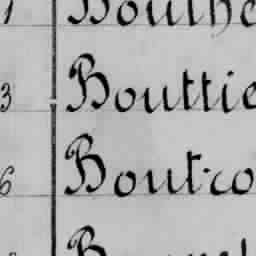 Bouthe
3 Bouttie
6 Boutro